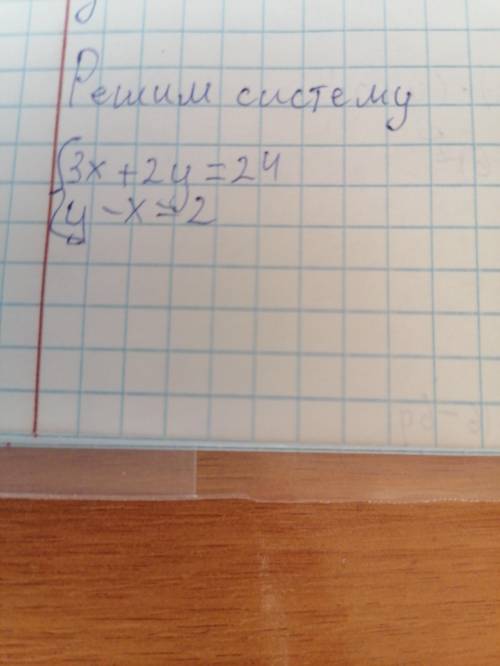 Решим систему
3x + 2y = 24
y - x = 2